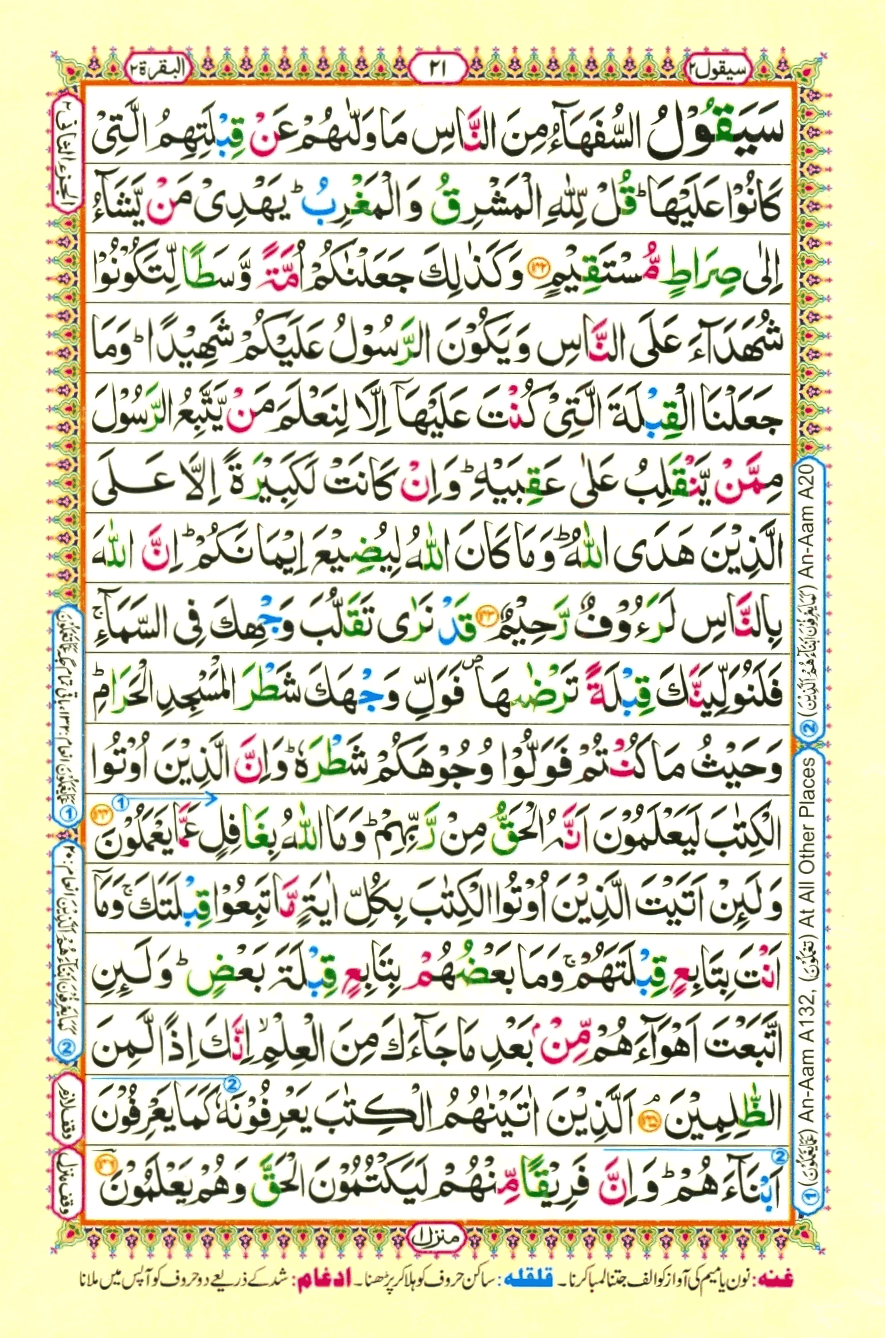 سيقول ٢
٢١
البقرة ٢
الجزء الثانی ٢
سَيَقُوۡلُ السُّفَهَآءُ مِنَ النَّاسِ مَا وَلّٰٮهُمۡ عَنۡ قِبۡلَتِهِمُ الَّتِىۡ
كَانُوۡا عَلَيۡهَا ؕ قُلۡ لِّلّٰهِ الۡمَشۡرِقُ وَالۡمَغۡرِبُ ؕ يَهۡدِىۡ مَنۡ يَّشَآءُ
اِلٰى صِرَاطٍ مُّسۡتَقِيۡمٍ ﴿۱۴۲﴾ وَكَذٰلِكَ جَعَلۡنٰكُمۡ اُمَّةً وَّسَطًا لِّتَکُوۡنُوۡا
شُهَدَآءَ عَلَى النَّاسِ وَيَكُوۡنَ الرَّسُوۡلُ عَلَيۡكُمۡ شَهِيۡدًا ؕ وَمَا
جَعَلۡنَا الۡقِبۡلَةَ الَّتِىۡ كُنۡتَ عَلَيۡهَآ اِلَّا لِنَعۡلَمَ مَنۡ يَّتَّبِعُ الرَّسُوۡلَ
مِمَّنۡ يَّنۡقَلِبُ عَلٰى عَقِبَيۡهِ ؕ وَاِنۡ كَانَتۡ لَكَبِيۡرَةً اِلَّا عَلَى
الَّذِيۡنَ هَدَى اللّٰهُ ؕ وَمَا كَانَ اللّٰهُ لِيُضِيْعَ اِيۡمَانَكُمۡ ؕ اِنَّ اللّٰهَ
بِالنَّاسِ لَرَءُوۡفٌ رَّحِيۡمٌ ﴿۱۴۳﴾ قَدۡ نَرٰى تَقَلُّبَ وَجۡهِكَ فِى السَّمَآءِ ۚ
فَلَـنُوَلِّيَنَّكَ قِبۡلَةً تَرۡضٰٮهَا ۪ فَوَلِّ وَجۡهَكَ شَطۡرَ الۡمَسۡجِدِ الۡحَـرَامِ ؕ
وَحَيۡثُ مَا كُنۡتُمۡ فَوَلُّوۡا وُجُوۡهَكُمۡ شَطۡرَهٗ ؕ وَاِنَّ الَّذِيۡنَ اُوۡتُوا
الۡكِتٰبَ لَيَعۡلَمُوۡنَ اَنَّهُ الۡحَـقُّ مِنۡ رَّبِّهِمۡ ؕ وَمَا اللّٰهُ بِغَافِلٍ عَمَّا يَعۡمَلُوۡنَ ﴿۱۴۴﴾ ①
وَلَٮِٕنۡ اَتَيۡتَ الَّذِيۡنَ اُوۡتُوا الۡكِتٰبَ بِكُلِّ اٰيَةٍ مَّا تَبِعُوۡا قِبۡلَتَكَ ۚ وَمَآ
اَنۡتَ بِتَابِعٍ قِبۡلَتَهُمۡ ۚ وَمَا بَعۡضُهُمۡ بِتَابِعٍ قِبۡلَةَ بَعۡضٍ ؕ وَلَٮِٕنِ
اتَّبَعۡتَ اَهۡوَآءَهُمۡ مِّنۡۢ بَعۡدِ مَا جَآءَكَ مِنَ الۡعِلۡمِ ۙ اِنَّكَ اِذًا لَّمِنَ
الظّٰلِمِيۡنَ ۘ ﴿۱۴۵﴾ اَلَّذِيۡنَ اٰتَيۡنٰهُمُ الۡكِتٰبَ يَعۡرِفُوۡنَهٗ ② كَمَا يَعۡرِفُوۡنَ
اَبۡنَآءَهُمۡ ؕ وَاِنَّ فَرِيۡقًا مِّنۡهُمۡ لَيَكۡتُمُوۡنَ الۡحَـقَّ وَهُمۡ يَعۡلَمُوۡنَ ﴿۱۴۶﴾ ②
وقف لازم
وقف منزل
① (عَمَّا يَعْمَلُوْنَ) An-Aam A132, (تَعْمَلُوْنَ) At All Other Places
② (كَمَا يَعْرِفُوْنَ اَبْنَآءَهُمُ الَّذِيْنَ) An-Aam A20
منزل ١
غنہ: نون یا میم کی آواز کو الف جتنا لمبا کرنا۔ قلقلہ: ساکن حروف کو ہلا کر پڑھنا۔ ادغام: شد کے ذریعے دو حروف کو آپس میں ملانا